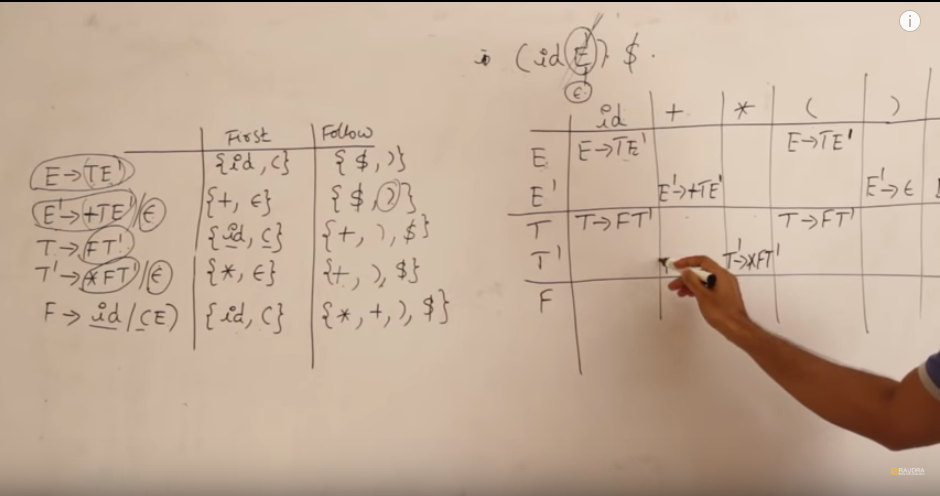 i) (id E) $.
ϵ
First Follow
E→TE' {id, (} {$, )}
E'→+TE'/ϵ {+, ϵ} {$, )}
T→FT' {id, (} {+, ), $}
T'→*FT'/ϵ {*, ϵ} {+, ), $}
F→id/(E) {id, (} {*, +, ), $}
id + * ( )
E E→TE' E→TE'
E' E'→+TE' E'→ϵ
T T→FT' T→FT'
T' T'→*FT'
F
RAUDRA